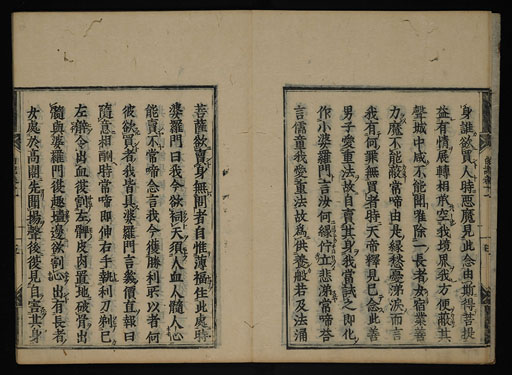 身誰欲買人時惡魔見此念由斯得菩提
益有情展轉相承空我境界我方便蔽其
聲城中咸不能聞唯除一長者女宿業善
力魔不能蔽常啼由是緣愁憂涕淚而言
我有何罪無買者時天帝釋見已念此善
男子愛重法故自賣其身我當試之即化
作小婆羅門言汝何緣佇立悲涕常啼答
言儒童我愛重法故為供養般若及法涌
菩薩欲賣身無問者自惟薄福住此處時
婆羅門曰我今欲祠天須人血人髓人心
能賣不常啼念言我今獲勝利所以者何
彼欲買者我皆具婆羅門言幾價直報曰
隨意相酬時常啼即伸右手執利刀刺已
左臂令出血復割左髀皮肉置地破骨出
髓與婆羅門復趣墻邊欲剖心出有長者
女處於高閣先聞揚聲後復見自害其身